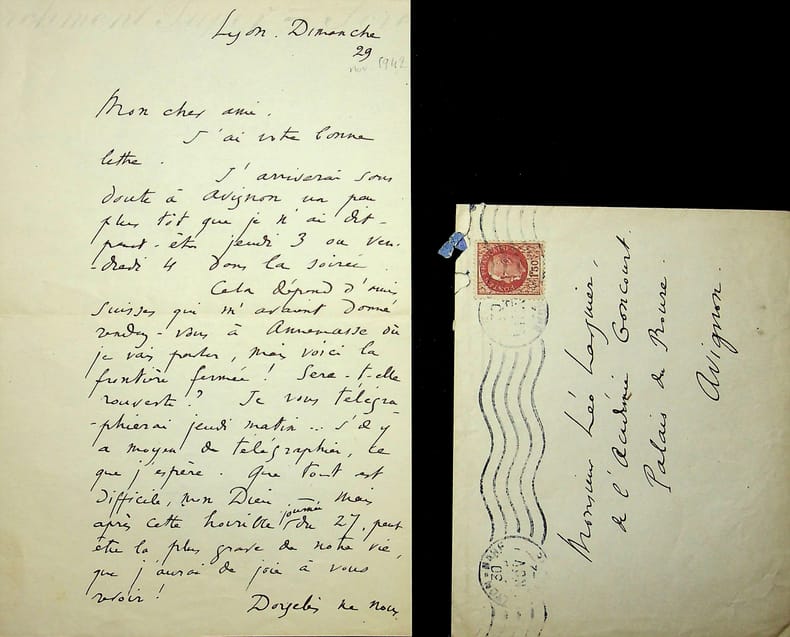 Lyon. Dimanche
29
nov. 1942
Mon cher ami.
J'ai votre bonne
lettre.
J'arriverai sans
doute à Avignon un peu
plus tôt que je n'ai dit -
peut-être jeudi 3 ou ven-
-dredi 4 dans la soirée.
Cela dépend d'amis
suisses qui m'avaient donné
rendez-vous à Annemasse où
je vais parler, mais voici la
frontière fermée ! Sera-t-elle
rouverte ? Je vous télégra-
-phierai jeudi matin ... s'il y
a moyen de télégraphier, ce
que j'espère. Que tout est
difficile, mon Dieu mais
après cette horrible journée du 27, peut
être la plus grave de notre vie,
que j'aurai de joie à vous
revoir !
Dorgelès ne nous
1F50
Monsieur Léo Larguier,
de l'Académie Goncourt.
Palais du Roure.
Avignon.
30
NOV